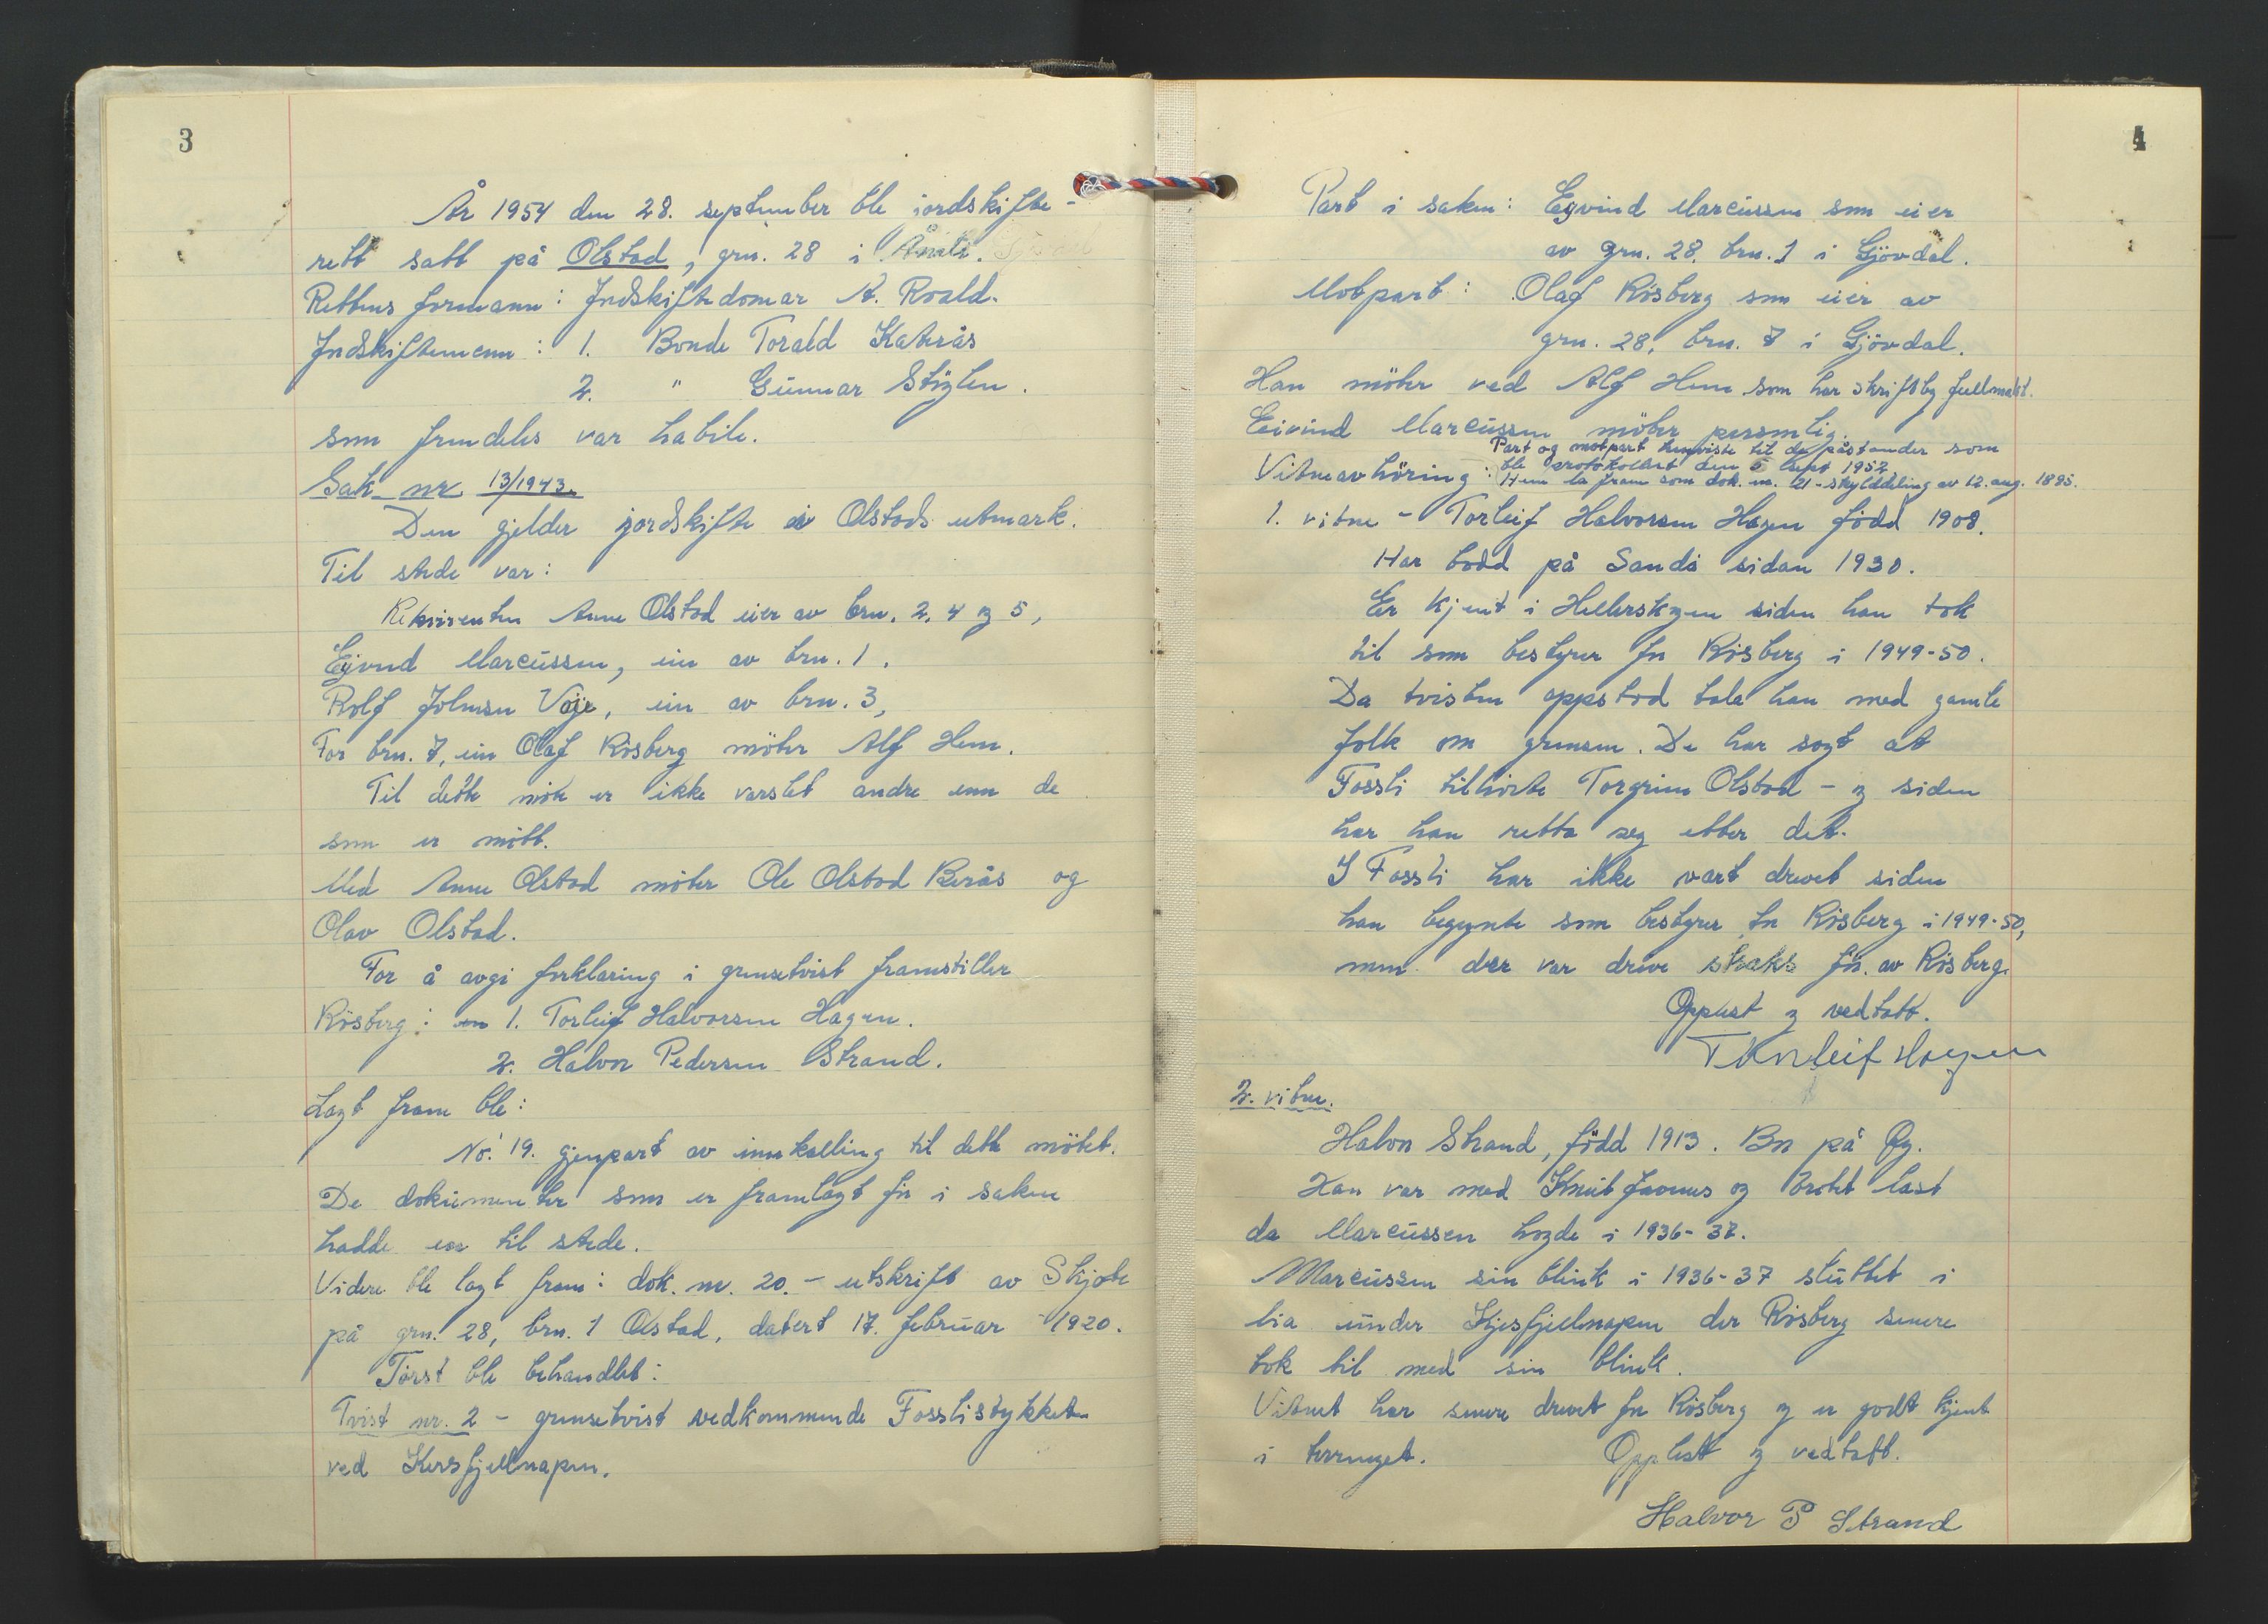 3
År 1954 den 28. september ble jordskifte-
rett satt på Olstad, grn. 28 i Åmli.
Rettens formann: Jordskiftedomar A. Roald.
Jordskiftemenn: 1. Bonde Torald Katerås
2. " Gunnar Stiglen.
som fremdeles var habile.
Sak nr 13/1943.
Den gjelder jordskifte i Olstads utmark.
Til stede var:
Rekvirenten Anne Olstad eier av brn. 2, 4 og 5,
Eyvind Marcussen, eier av brn. 1.
Rolf Johnsen Voje, eier av brn. 3,
For brn. 7, eier Olaf Rösberg möter Alf Hem.
Til dette möte er ikke varslet andre enn de
som er mött.
Med Anne Olstad möter Ole Olstad Berås og
Olav Olstad.
For å avgi forklaring i grensetvist framstiller
Rösberg: 1. Torleif Halvorsen Hagen.
2. Halvor Pedersen Strand.
Lagt fram ble:
No. 19. gjenpart av innkalling til dette mötet.
De dokumenter som er framlagt för i saken
hadde en til stede.
Videre ble lagt fram: dok. nr. 20. - utskrift av Skjöte
på grn. 28, brn. 1 Olstad, datert 17. februar 1920.
Först ble behandlet:
Tvist nr. 2 - grensetvist vedkommende Fosslistykket
ved Kjersfjellnapen.
4
Part i saken: Eyvind Marcussen som eier
av grn. 28, brn. 1 i Gjövdal.
Motpart: Olaf Rösberg som eier av
grn. 28, brn. 7 i Gjövdal.
Han möter ved Alf Hem som har skriftlig fullmakt.
Eivind Marcussen möter personlig.
Part og motpart henviste til de påstander som
ble protokollert den 5 sept 1952.
Vitneavhöring: Hem la fram som dok. nr. 21 - skylddeling av 12. aug. 1895.
1. vitne - Torleif Halvorsen Hagen född 1908.
Har bodd på Sandå sidan 1930.
Er kjent i Hellerskogen siden han tok
til som bestyrer for Rösberg i 1949-50.
Da tvisten oppstod tala han med gamle
folk om grensen. De har sagt at
Fossli tilhörte Torgrim Olstad - og siden
har han retta seg etter det.
I Fossli har ikke vært drevet siden
han begynte som bestyrer for Rösberg i 1949-50,
men der var drive straks för av Rösberg.
Opplest og vedtatt.
Thorleif Hagen
2. vitne.
Halvor Strand, född 1913. Bor på Öy.
Han var med Knut Jaomes og brötet last
da Marcussen hogde i 1936-37.
Marcussen sin blink i 1936-37 sluttet i
lia under Kjesfjellnapen der Rösberg senere
tok til med sin blink.
Vitnet har senere drevet for Rösberg og er godt kjent
i terrenget. Opplest og vedtatt.
Halvor P Strand